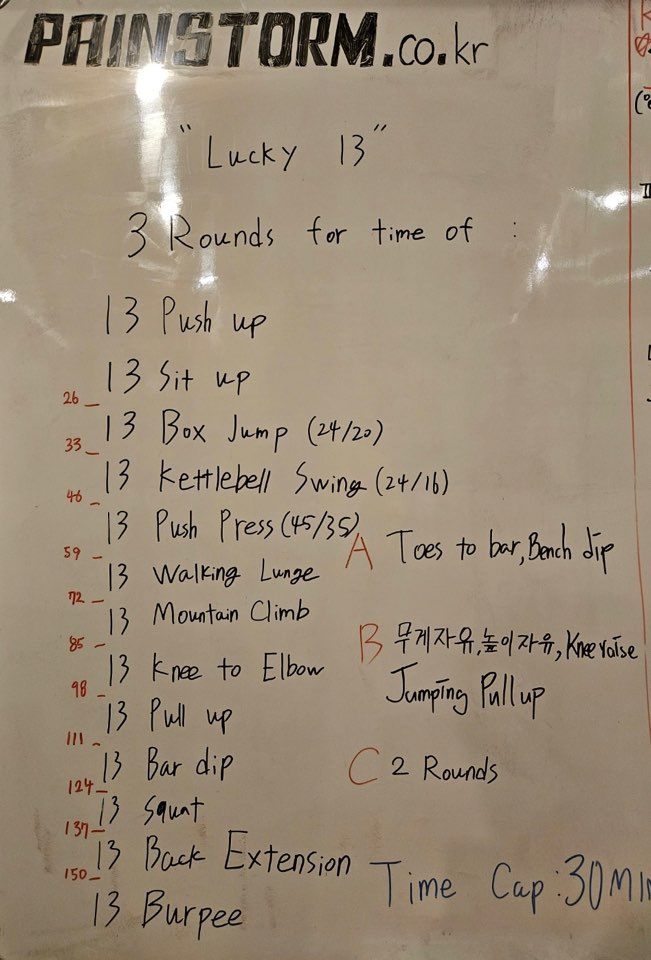 PAINSTORM.co.kr
"Lucky 13"
3 Rounds for time of :
13 Push up
13 Sit up
26
13 Box Jump (24/20)
33
13 Kettlebell Swing (24/16)
46
13 Push Press (45/35)
59
13 Walking Lunge
72
13 Mountain Climb
85
13 Knee to Elbow
98
13 Pull up
111
13 Bar dip
124
13 Squat
137
13 Back Extension
150
13 Burpee
A Toes to bar, Bench dip
B 무게자유, 높이자유, Knee raise
Jumping Pull up
C 2 Rounds
Time Cap : 30 MIN